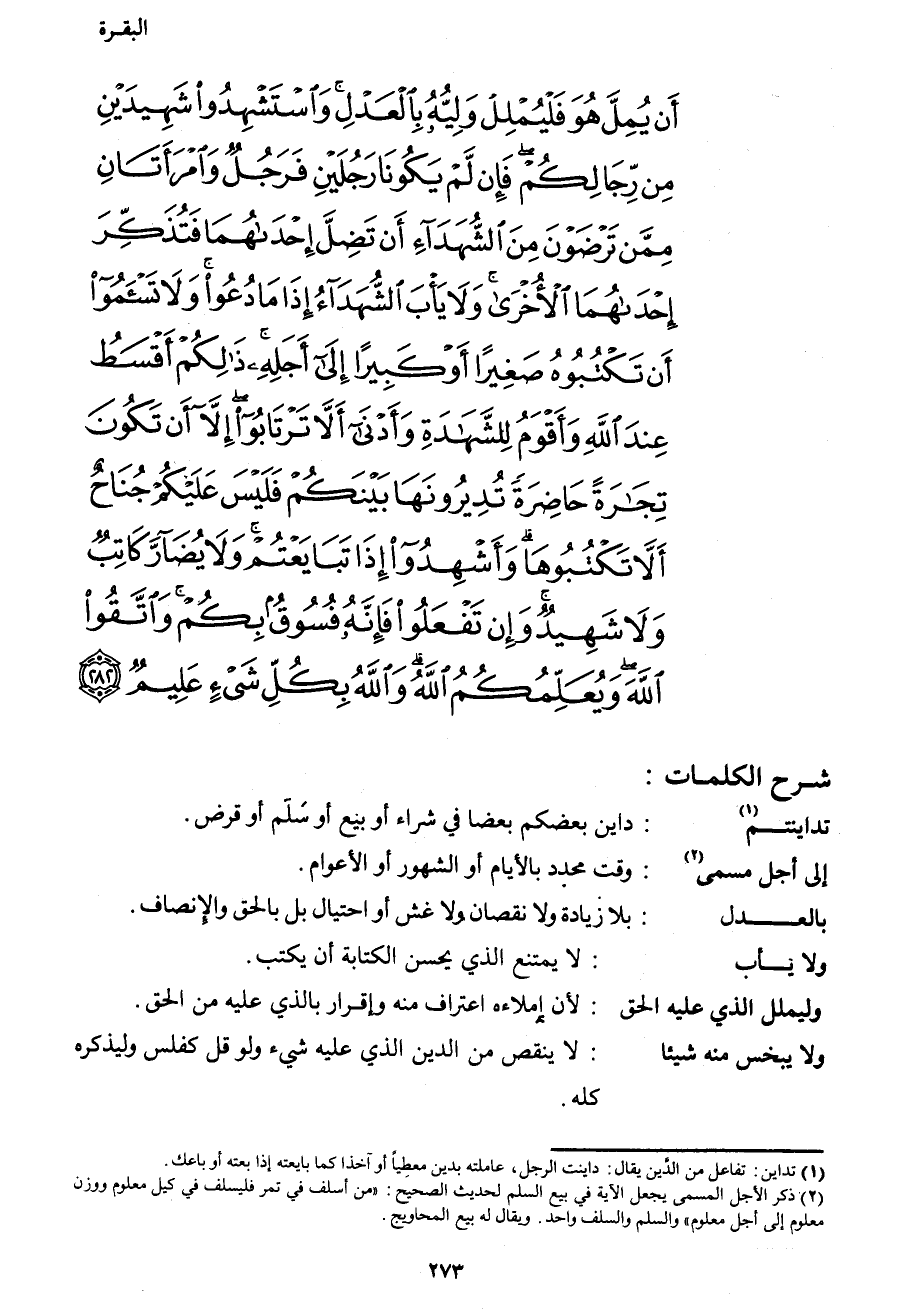 البقرة
أَن يُمِلَّ هُوَ فَلْيُمْلِلْ وَلِيُّهُۥ بِٱلْعَدْلِ ۚ وَٱسْتَشْهِدُوا۟ شَهِيدَيْنِ
مِن رِّجَالِكُمْ ۖ فَإِن لَّمْ يَكُونَا رَجُلَيْنِ فَرَجُلٌ وَٱمْرَأَتَانِ
مِمَّن تَرْضَوْنَ مِنَ ٱلشُّهَدَآءِ أَن تَضِلَّ إِحْدَىٰهُمَا فَتُذَكِّرَ
إِحْدَىٰهُمَا ٱلْأُخْرَىٰ ۚ وَلَا يَأْبَ ٱلشُّهَدَآءُ إِذَا مَا دُعُوا۟ ۚ وَلَا تَسْـَٔمُوٓا۟
أَن تَكْتُبُوهُ صَغِيرًا أَوْ كَبِيرًا إِلَىٰٓ أَجَلِهِۦ ۚ ذَٰلِكُمْ أَقْسَطُ
عِندَ ٱللَّهِ وَأَقْوَمُ لِلشَّهَـٰدَةِ وَأَدْنَىٰٓ أَلَّا تَرْتَابُوٓا۟ ۖ إِلَّآ أَن تَكُونَ
تِجَـٰرَةً حَاضِرَةً تُدِيرُونَهَا بَيْنَكُمْ فَلَيْسَ عَلَيْكُمْ جُنَاحٌ
أَلَّا تَكْتُبُوهَا ۗ وَأَشْهِدُوٓا۟ إِذَا تَبَايَعْتُمْ ۚ وَلَا يُضَآرَّ كَاتِبٌ
وَلَا شَهِيدٌ ۚ وَإِن تَفْعَلُوا۟ فَإِنَّهُۥ فُسُوقٌۢ بِكُمْ ۗ وَٱتَّقُوا۟
ٱللَّهَ ۖ وَيُعَلِّمُكُمُ ٱللَّهُ ۗ وَٱللَّهُ بِكُلِّ شَىْءٍ عَلِيمٌ ﴿٢٨٢﴾
شـرح الكلمـات :
تداينتـــم(١) : داين بعضكم بعضا في شراء أو بيع أو سَلَم أو قرض.
إلى أجل مسمى(٢) : وقت محدد بالأيام أو الشهور أو الأعوام.
بالعــــدل : بلا زيادة ولا نقصان ولا غش أو احتيال بل بالحق والإنصاف.
ولا يَـــأب : لا يمتنع الذي يحسن الكتابة أن يكتب.
وليملل الذي عليه الحق : لأن إملاءه اعتراف منه وإقـرار بالذي عليه من الحق.
ولا يبخس منه شيئا : لا ينقص من الدين الذي عليه شيء ولو قل كفلس وليذكره
كله.
(١) تداين: تفاعل من الدَّين يقال: داينت الرجل، عاملته بدين معطياً أو آخذا كما بايعته إذا بعته أو باعك.
(٢) ذكر الأجل المسمى يجعل الآية في بيع السلم لحديث الصحيح: «من أسلف في تمر فليسلف في كيل معلوم ووزن
معلوم إلى أجل معلوم» والسلم والسلف واحد. ويقال له بيع المحاويج.
٢٧٣